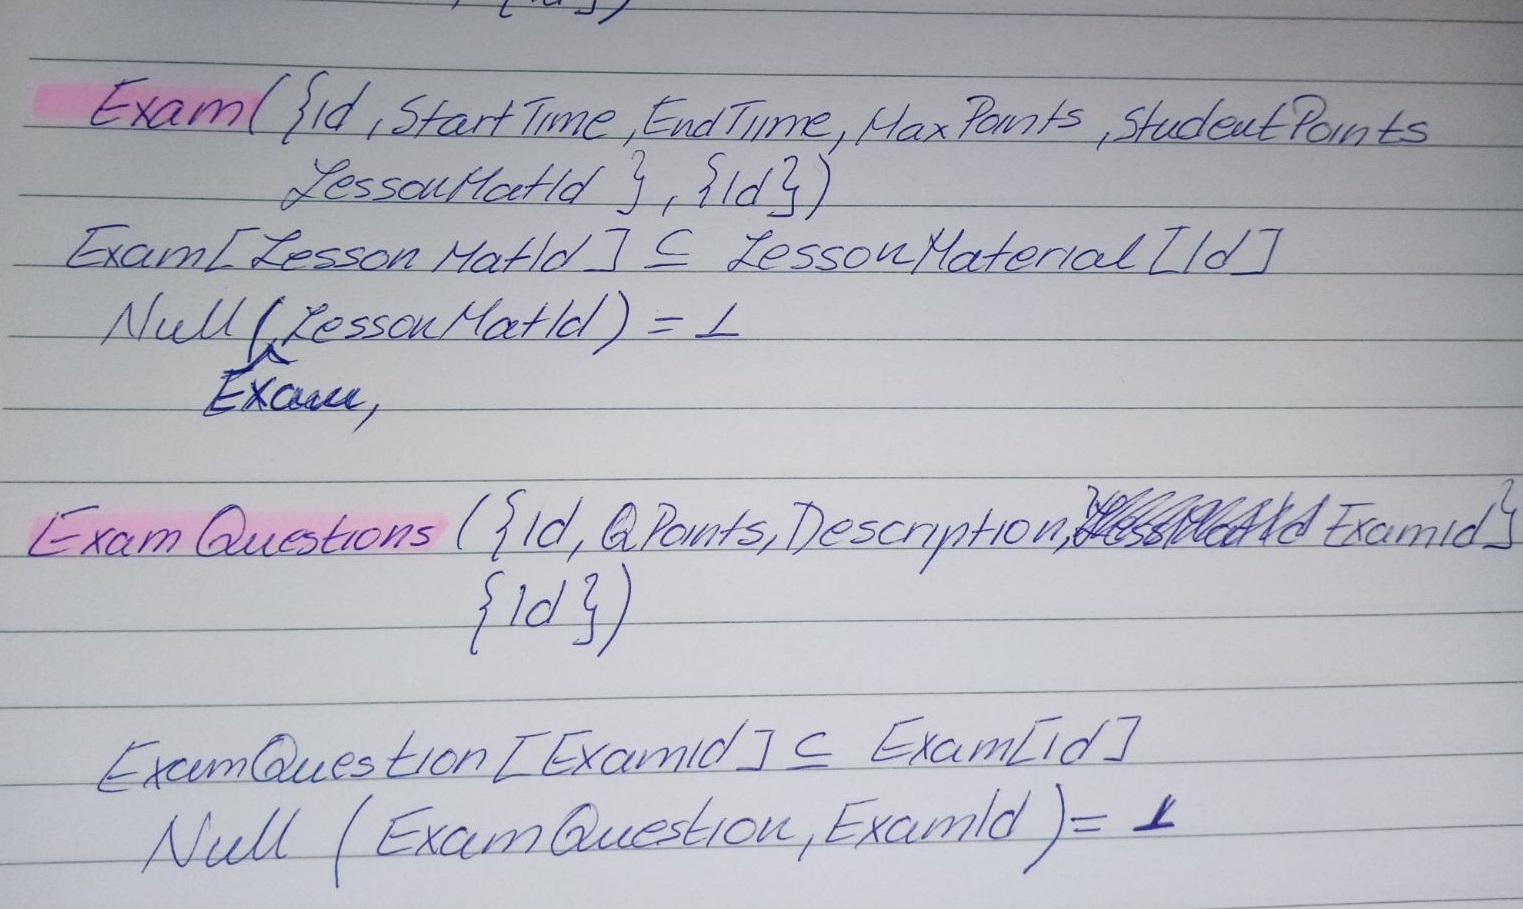 Exam({id, StartTime, EndTime, MaxPoints, StudentPoints
LessonMatId }, {Id})
Exam[LessonMatId] ⊆ LessonMaterial[Id]
Null(LessonMatId) = ⊥
Exam,
ExamQuestions ({Id, QPoints, Description, ExamId}
{Id})
ExamQuestion[ExamId] ⊆ Exam[id]
Null (ExamQuestion, ExamId) = ⊥